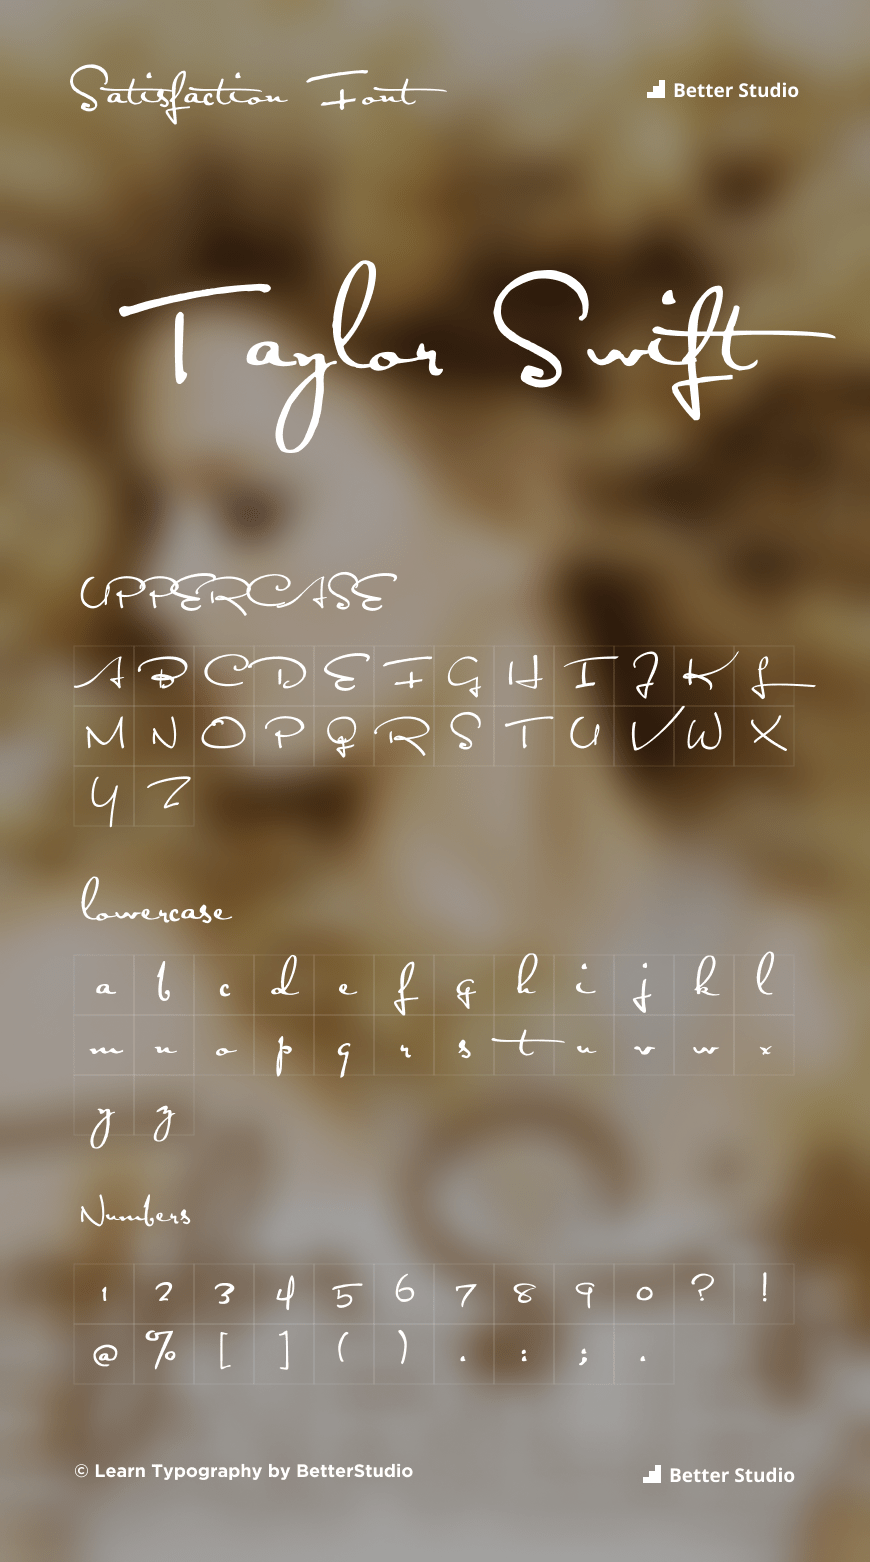 Satisfaction Font
Better Studio
Taylor Swift
UPPERCASE
A B C D E F G H I J K L
M N O P Q R S T U V W X
Y Z
lowercase
a b c d e f g h i j k l
m n o p q r s t u v w x
y z
Numbers
1 2 3 4 5 6 7 8 9 0 ? !
@ % [ ] ( ) . : ; .
© Learn Typography by BetterStudio
Better Studio